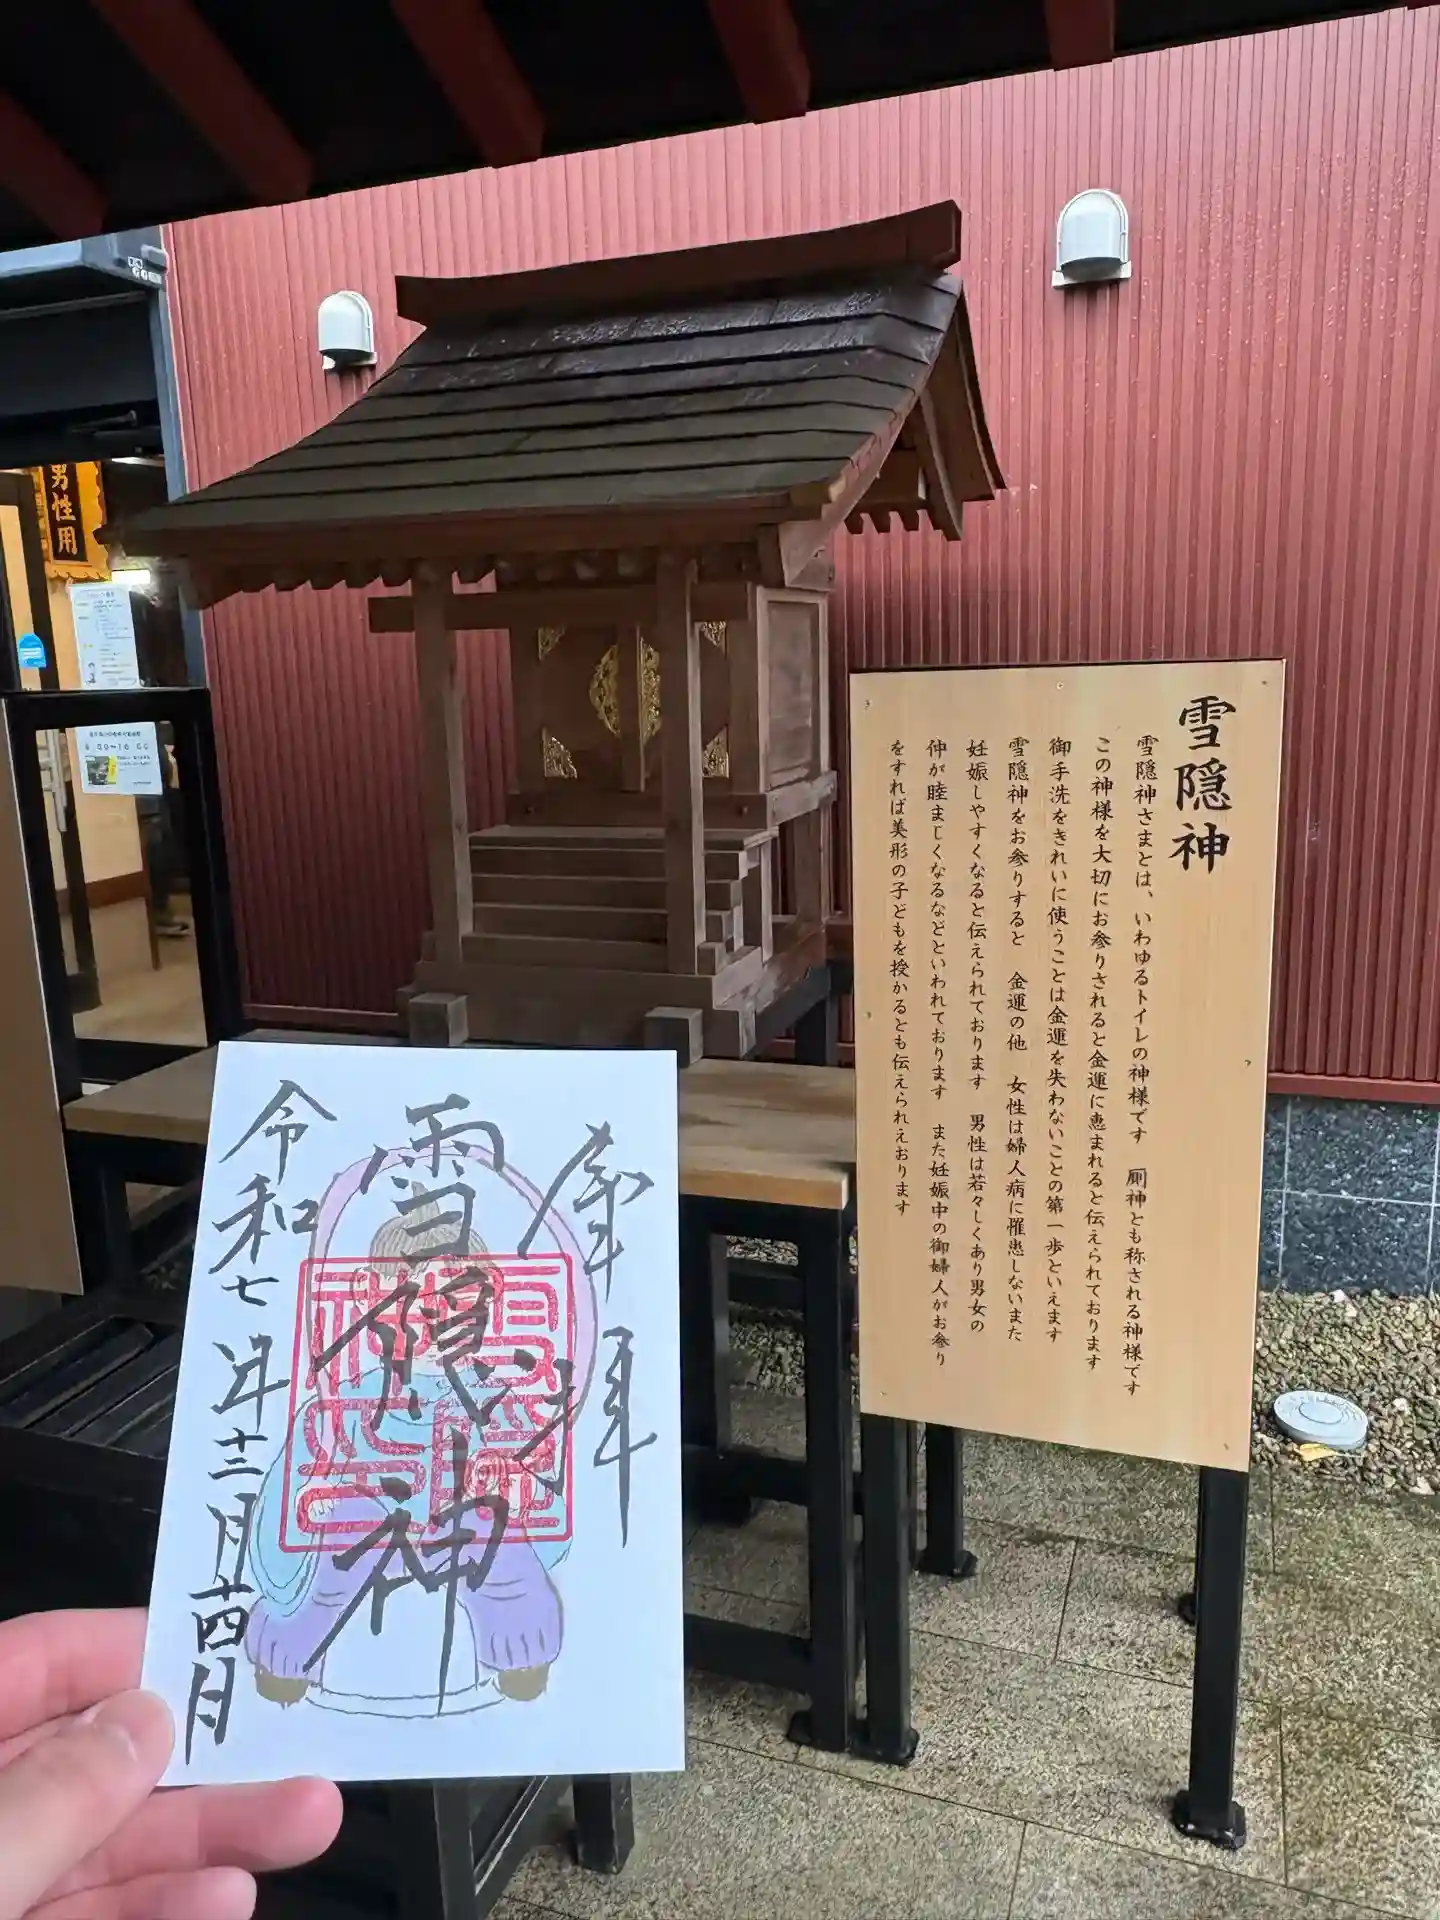 男性用
雪隠神
雪隠神さまとは、いわゆるトイレの神様です 厠神とも称される神様です
この神様を大切にお参りされると金運に恵まれると伝えられております
御手洗をきれいに使うことは金運を失わないことの第一歩といえます
雪隠神をお参りすると 金運の他 女性は婦人病に罹患しないまた
妊娠しやすくなると伝えられております 男性は若々しくあり男女の
仲が睦まじくなるなどといわれております また妊娠中の御婦人がお参り
をすれば美形の子どもを授かるとも伝えられえおります
奉拝
雪隠神
雪隠神印
令和七年十二月十四日